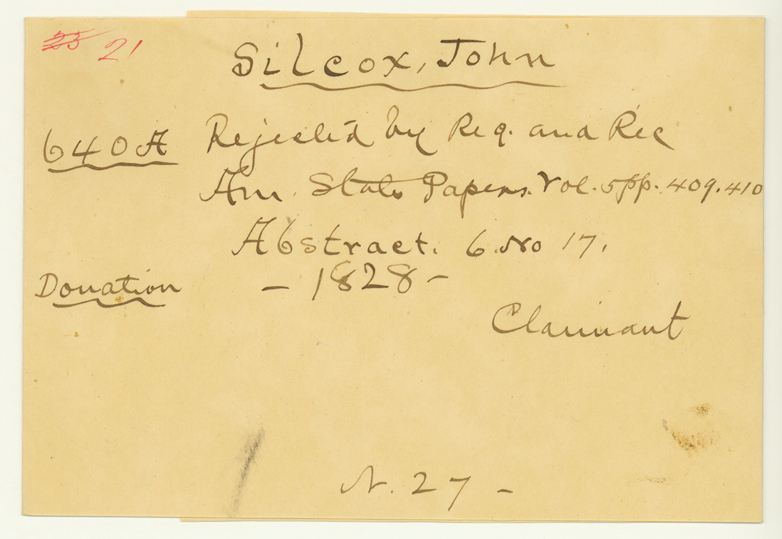 21
Silcox, John
640 A Rejected by Reg. and Rec
Am. State Papers. Vol. 5 pp. 409. 410
Abstract. 6. No 17.
Donation - 1828 -
Claimant
N. 27 -